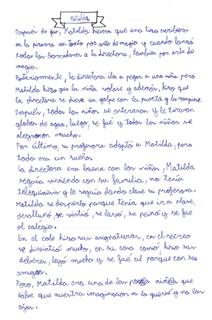 Matilda
Después de que, Matilda hiciera que una tiza escribiera
en la pizarra un texto por arte de magia y cuando lanzó
todos los borradores a la directora, también por arte de
magia.
Posteriormente, la directora iba a pegar a una niña pero
Matilda hizo que la niña volase y además, hizo que
la directora se diese un golpe con la puerta y la rompiese.
Después, todos los niños se enteraron y le tiraron
globos de agua, luego, se fué y todos los niños se
alegraron mucho.
Por último, su profesora adoptó a Matilda, pero
todo era un sueño.
La directora era buena con los niños, Matilda
seguía viviendo con su familia, no tenía
telequinesis y le seguía dando clase su profesora.
Matilda se despertó porque tenía que ir a clase,
desayunó, se vistió, se lavó, se peinó y se fue
al colegio.
En el cole hizo sus asignaturas, en el recreo
se divirtió mucho, en su casa como hizo sus
deberes, leyó mucho y se fue al parque con sus
amigos.
Pero, Matilda era una de las niñas que
sabe que nuestra imaginación es lo que vé y no los
ojos.